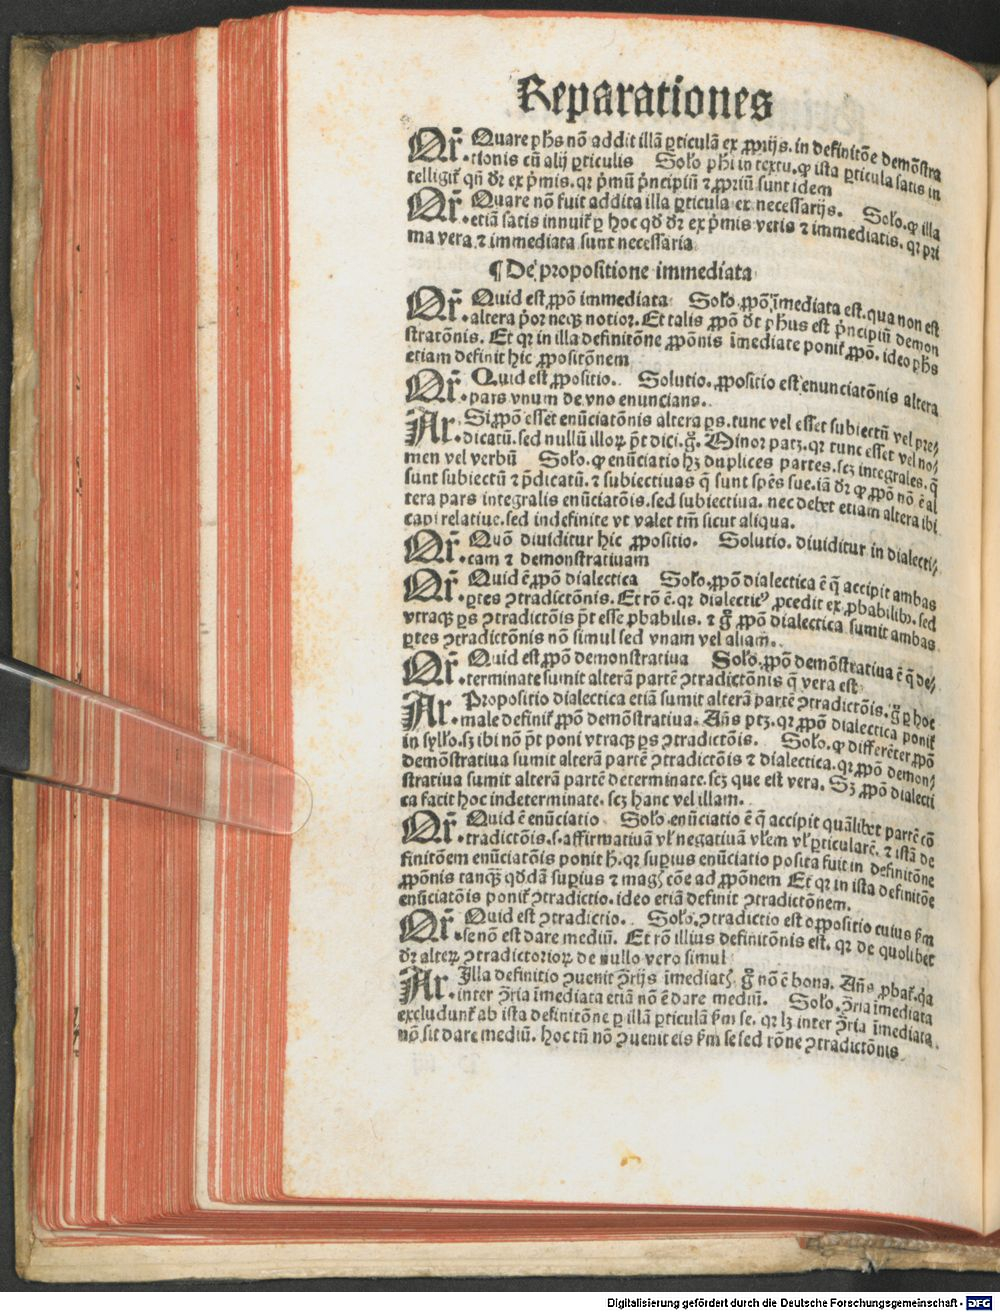 Reparationes
Qr̄. Quare ph̄s nō addit illā ꝑticulā ex ꝓprijs. in definitōe demōstra
tionis cū alij ꝑticulis Solo ph̄i in textu. ꝙ ista ꝑticula satis in
telligit᷑ qn̄ dr̄ ex p̄mis. qꝛ p̄mū p̄ncipiū ⁊ ꝓpriū sunt idem
Qr̄. Quare nō fuit addita illa ꝑticula ex necessarijs. Solo. ꝙ illa
etiā satis innuit᷑ ꝑ hoc qd̄ dr̄ ex p̄mis veris ⁊ immediatis. qꝛ pri
ma vera ⁊ immediata sunt necessaria
¶ De propositione immediata
Qr̄. Quid est ꝓpō immediata Solo. ꝓpō īmediata est. qua non est
altera p̄or neqꝫ notior. Et talis ꝓpō dr̄ ph̄us est p̄ncipiū demon
stratōnis. Et qꝛ in illa definitōne ꝓpōnis īmediate ponit᷑ ꝓpō. ideo ph̄s
etiam definit hic ꝓpositōnem
Qr̄. Quid est ꝓpositio. Solutio. ꝓpositio est enunciatōnis altera
pars vnum de vno enuncians.
Ar. Si ꝓpō esset enūciatōnis altera ꝑs. tunc vel esset subiectū vel pre⸗
dicatū. sed nullū illoꝝ p̄t dici. g̊. Minor patꝫ. qꝛ tunc esset vel no⸗
men vel verbū Solo. ꝙ enūciatio hꝫ duplices partes. scꝫ integrales. q̄
sunt subiectū ⁊ p̄dicatū. ⁊ subiectiuas q̄ sunt spēs sue. iā dr̄ ꝙ ꝓpō nō ē al
tera pars integralis enūciatōis. sed subiectiua. nec debet etiam altera ibi
capi relatiue. sed indefinite vt valet tm̄ sicut aliqua.
Qr̄. Quō diuiditur hic ꝓpositio. Solutio. diuiditur in dialecti⸗
cam ⁊ demonstratiuam
Qr̄. Quid ē ꝓpō dialectica Solo. ꝓpō dialectica ē q̄ accipit ambas
ꝑtes ꝯtradictōnis. Et rō ē. qꝛ dialecticꝰ ꝓcedit ex ꝓbabilibꝫ. sed
vtraqꝫ ꝑs ꝯtradictōis p̄t esse ꝓbabilis. ⁊ g̊ ꝓpō dialectica sumit ambas
ꝑtes ꝯtradictōnis nō simul sed vnam vel aliam.
Qr̄. Quid est ꝓpō demonstratiua Solo. ꝓpō demōstratiua ē q̄ de⸗
terminate sumit alterā partē ꝯtradictōnis q̄ vera est
Ar. Propositio dialectica etiā sumit alterā partē ꝯtradictōnis. g̊ ꝑ hoc
male definit᷑ ꝓpō demōstratiua. Añs ptꝫ. qꝛ ꝓpō dialectica ponit᷑
in syllo. sꝫ ibi nō p̄t poni vtraqꝫ ꝑs ꝯtradictōis. Solo. ꝙ differēter ꝓpō
demōstratiua sumit alterā partē ꝯtradictōis ⁊ dialectica. qꝛ ꝓpō demon⸗
stratiua sumit alterā partē determinate. scꝫ que est vera. Sꝫ ꝓpō dialecti
ca facit hoc indeterminate. scꝫ hanc vel illam.
Qr̄. Quid ē enūciatio Solo. enūciatio ē q̄ accipit quālibet partē cō
tradictōis. s. affirmatiuā vl̄ negatiuā vl̄em vl̄ ꝑticularē. ⁊ istā de
finitōem enūciatōis ponit h̄. qꝛ suꝑius enūciatio posita fuit in definitōne
ꝓpōnis tanqꝫ qd̄dā suꝑius ⁊ magꝭ cōe ad ꝓpōnem Et qꝛ in ista definitōe
enūciatōnis ponit᷑ ꝯtradictio. ideo etiā definit ꝯtradictōnem.
Qr̄. Quid est ꝯtradictio. Solo. ꝯtradictio est oppositio cuius km̄
se nō est dare mediū. Et rō illius definitōnis est. qꝛ de quolibet
dr̄ alteꝝ ꝯtradictorioꝝ de nullo vero simul
Ar. Illa definitio ꝯuenit ꝯ̄rijs īmediatꝭ. g̊ nō ē bona. Añs ꝓbat᷑. qa
inter ꝯ̄ria īmediata etiā nō ē dare mediū. Solo. ꝯ̄ria īmediata
excludunt᷑ ab ista definitōne ꝑ illā ꝑticulā km̄ se. qꝛ lꝫ inter ꝯ̄ria īmediata
nō sit dare mediū. hoc tn̄ nō ꝯuenit eis km̄ se sed rōne ꝯtradictōnis
Digitalisierung gefördert durch die Deutsche Forschungsgemeinschaft - DFG